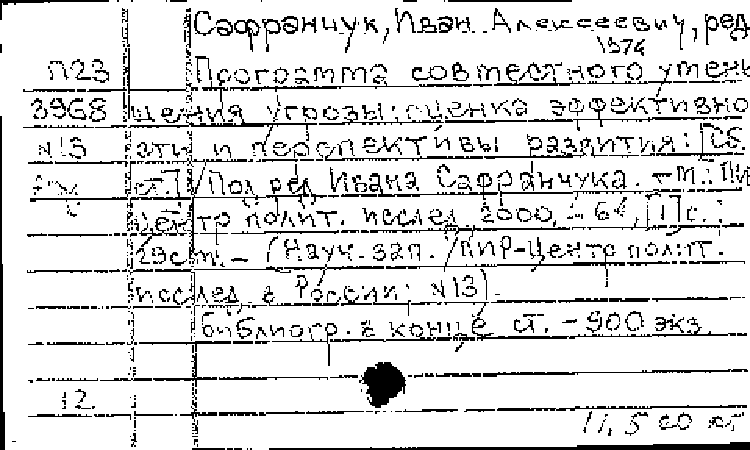 Сафранчук, Иван Алексеевич, ред
1974
П23 Программа совместного умень
3968 шения угрозы: оценка эффективно
N13 сти и перспективы развития: [Сб.
ст.] / Под ред Ивана Сафранчука. - М.: ПИР
Центр полит. исслед 2000. - 64, [1] с.:
29 см. - (Науч. зап. / ПИР-Центр полит.
исслед. в России: N13)
библиогр. в конце ст. - 900 экз.
12.
11.5 00 кг